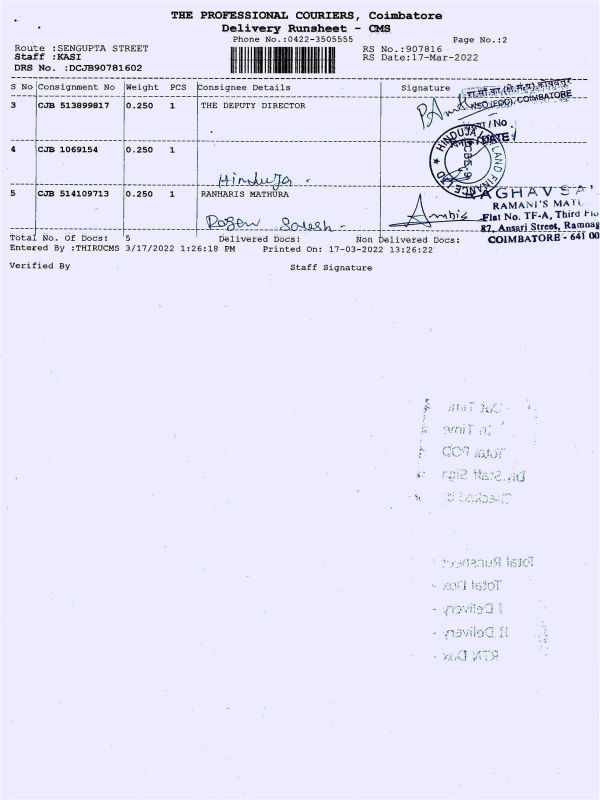 THE PROFESSIONAL COURIERS, Coimbatore
Delivery Runsheet - CMS
Phone No.:0422-3505555 Page No.:2
Route :SENGUPTA STREET RS No.:907816
Staff :KASI RS Date:17-Mar-2022
DRS No. :DCJB90781602
S No Consignment No Weight PCS Consignee Details Signature
3 CJB 513899817 0.250 1 THE DEPUTY DIRECTOR
NSO (FOD), COIMBATORE
/ No.
/DATE
4 CJB 1069154 0.250 1
HINDUJA LEYLAND FINANCE LTD
Hinduja -
5 CJB 514109713 0.250 1 RANHARIS MATHURA
RAGHAVSA
RAMANI'S
Flat No. TF-A, Third
87, Ansari Street, Ramnag
COIMBATORE - 641 00
Total No. Of Docs: 5 Delivered Docs: Non Delivered Docs:
Entered By :THIRUCMS 3/17/2022 1:26:18 PM Printed On: 17-03-2022 13:26:22
Verified By Staff Signature
Out Time
In Time
Total POD
Total Runsheet
Total Dox -
I Delivery -
II Delivery -
RTN Dox -